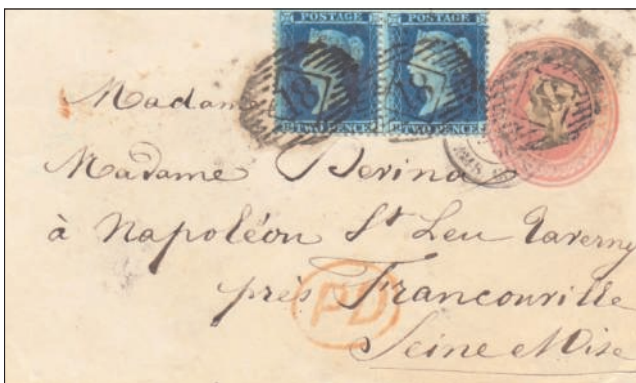 POSTAGE POSTAGE
TWO PENCE TWO PENCE
18 18
Madame
Madame Berina
à Napoléon St Leu Taverny
près Franconville
PD
Seine et Oise